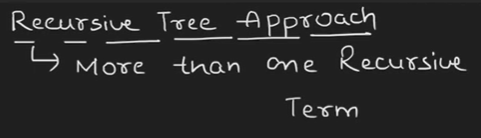 Recursive Tree Approach
↳ More than one Recursive
Term